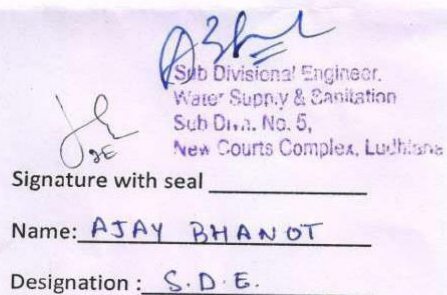 Sub Divisional Engineer.
Water Supply & Sanitation
Sub Divn. No. 5,
New Courts Complex, Ludhiana
JE
Signature with seal
Name: AJAY BHANOT
Designation : S.D.E.